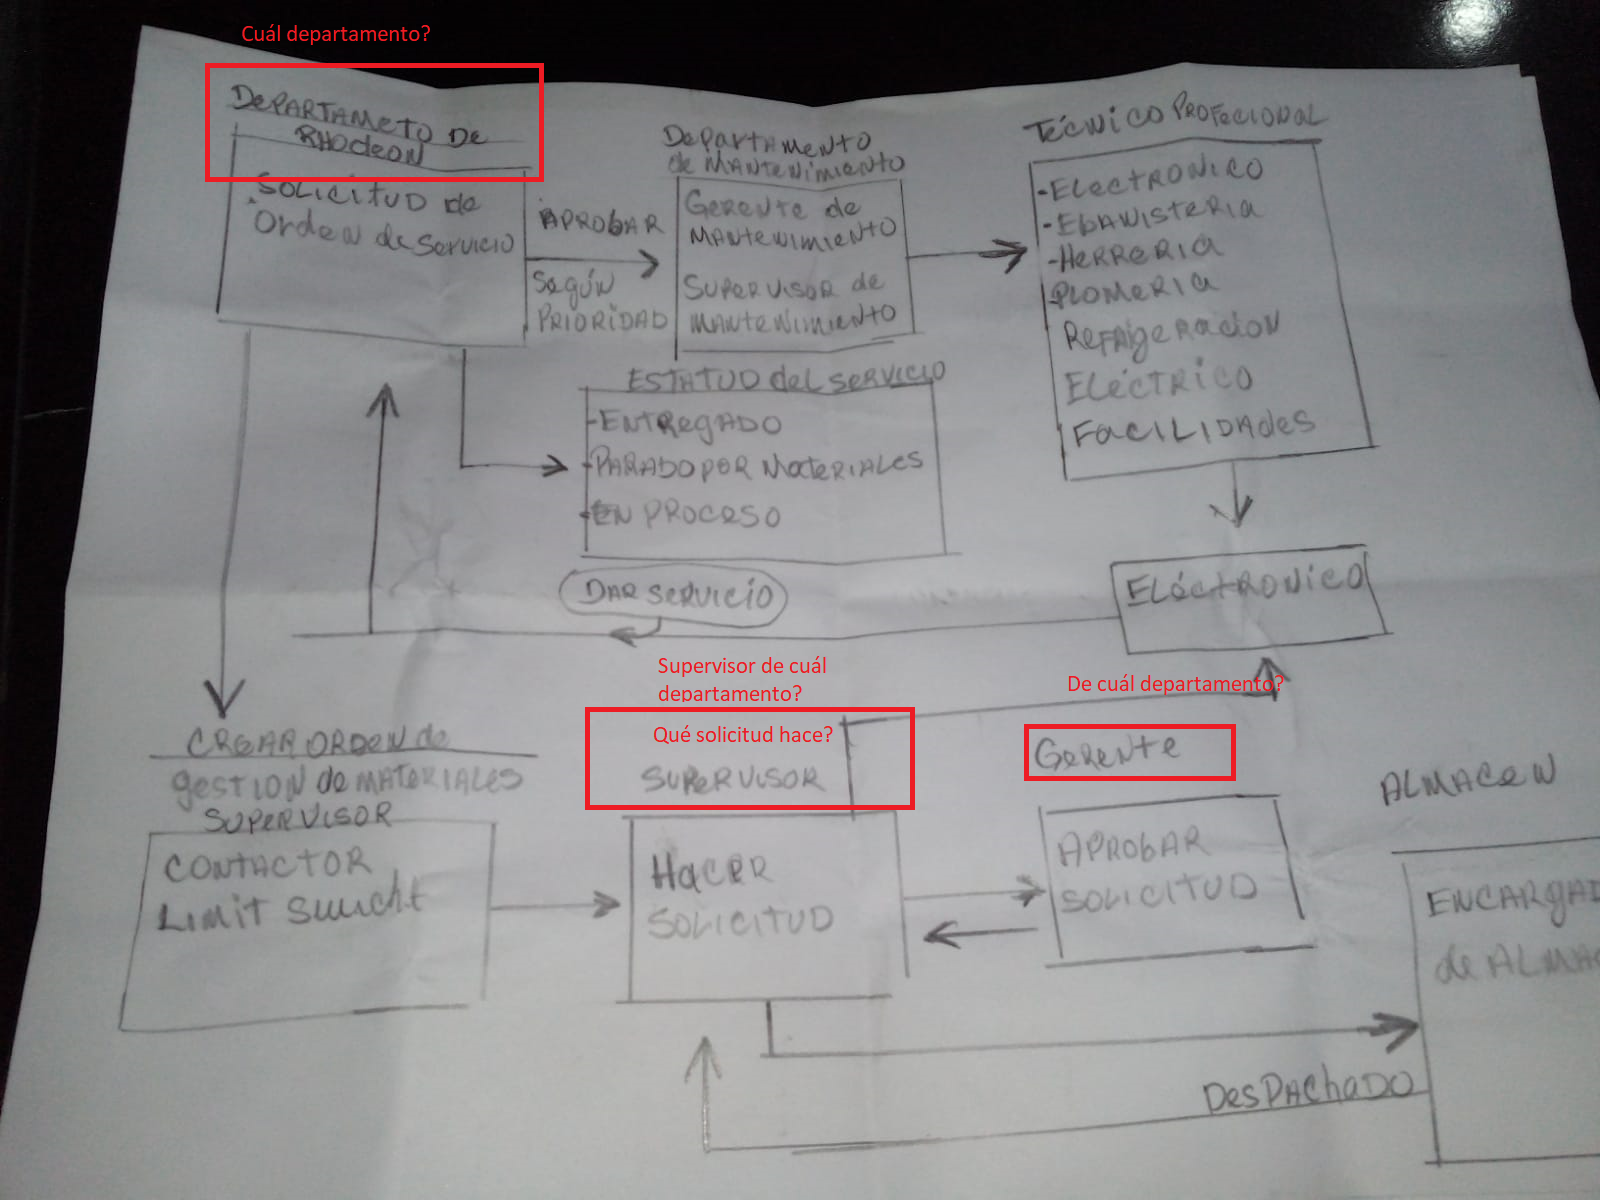 Cuál departamento?
DePARTAMeTO De
RHODeON
SOLICITUD de
Orden de Servicio
APROBAR
Según
PRIORIDAD
Departamento
de MANTENIMIENTO
Gerente de
MANTENIMIENTO
SUPERVISOR de
MANTENIMIENTO
TÉCNICO PROFECIONAL
-ELECTRONICO
-EbANISTERIA
-HERRERIA
PLOMERIA
REFRIgeRACION
ELÉCTRICO
FACILIDADES
ESTATUD del SERVICIO
-ENTREgADO
-PARADO POR MATERIALES
-EN PROCESO
DAR SERVICIO
ELÉCTRONICO
Supervisor de cuál
departamento?
Qué solicitud hace?
SUPERVISOR
De cuál departamento?
Gerente
CREAR ORDEN de
gESTION de MATERIALES
SUPERVISOR
CONTACTOR
LIMIT Swucht
HACER
SOLICITUD
APROBAR
SOLICITUD
ALMACEN
ENCARgAD
de ALMAC
DesPACHADO